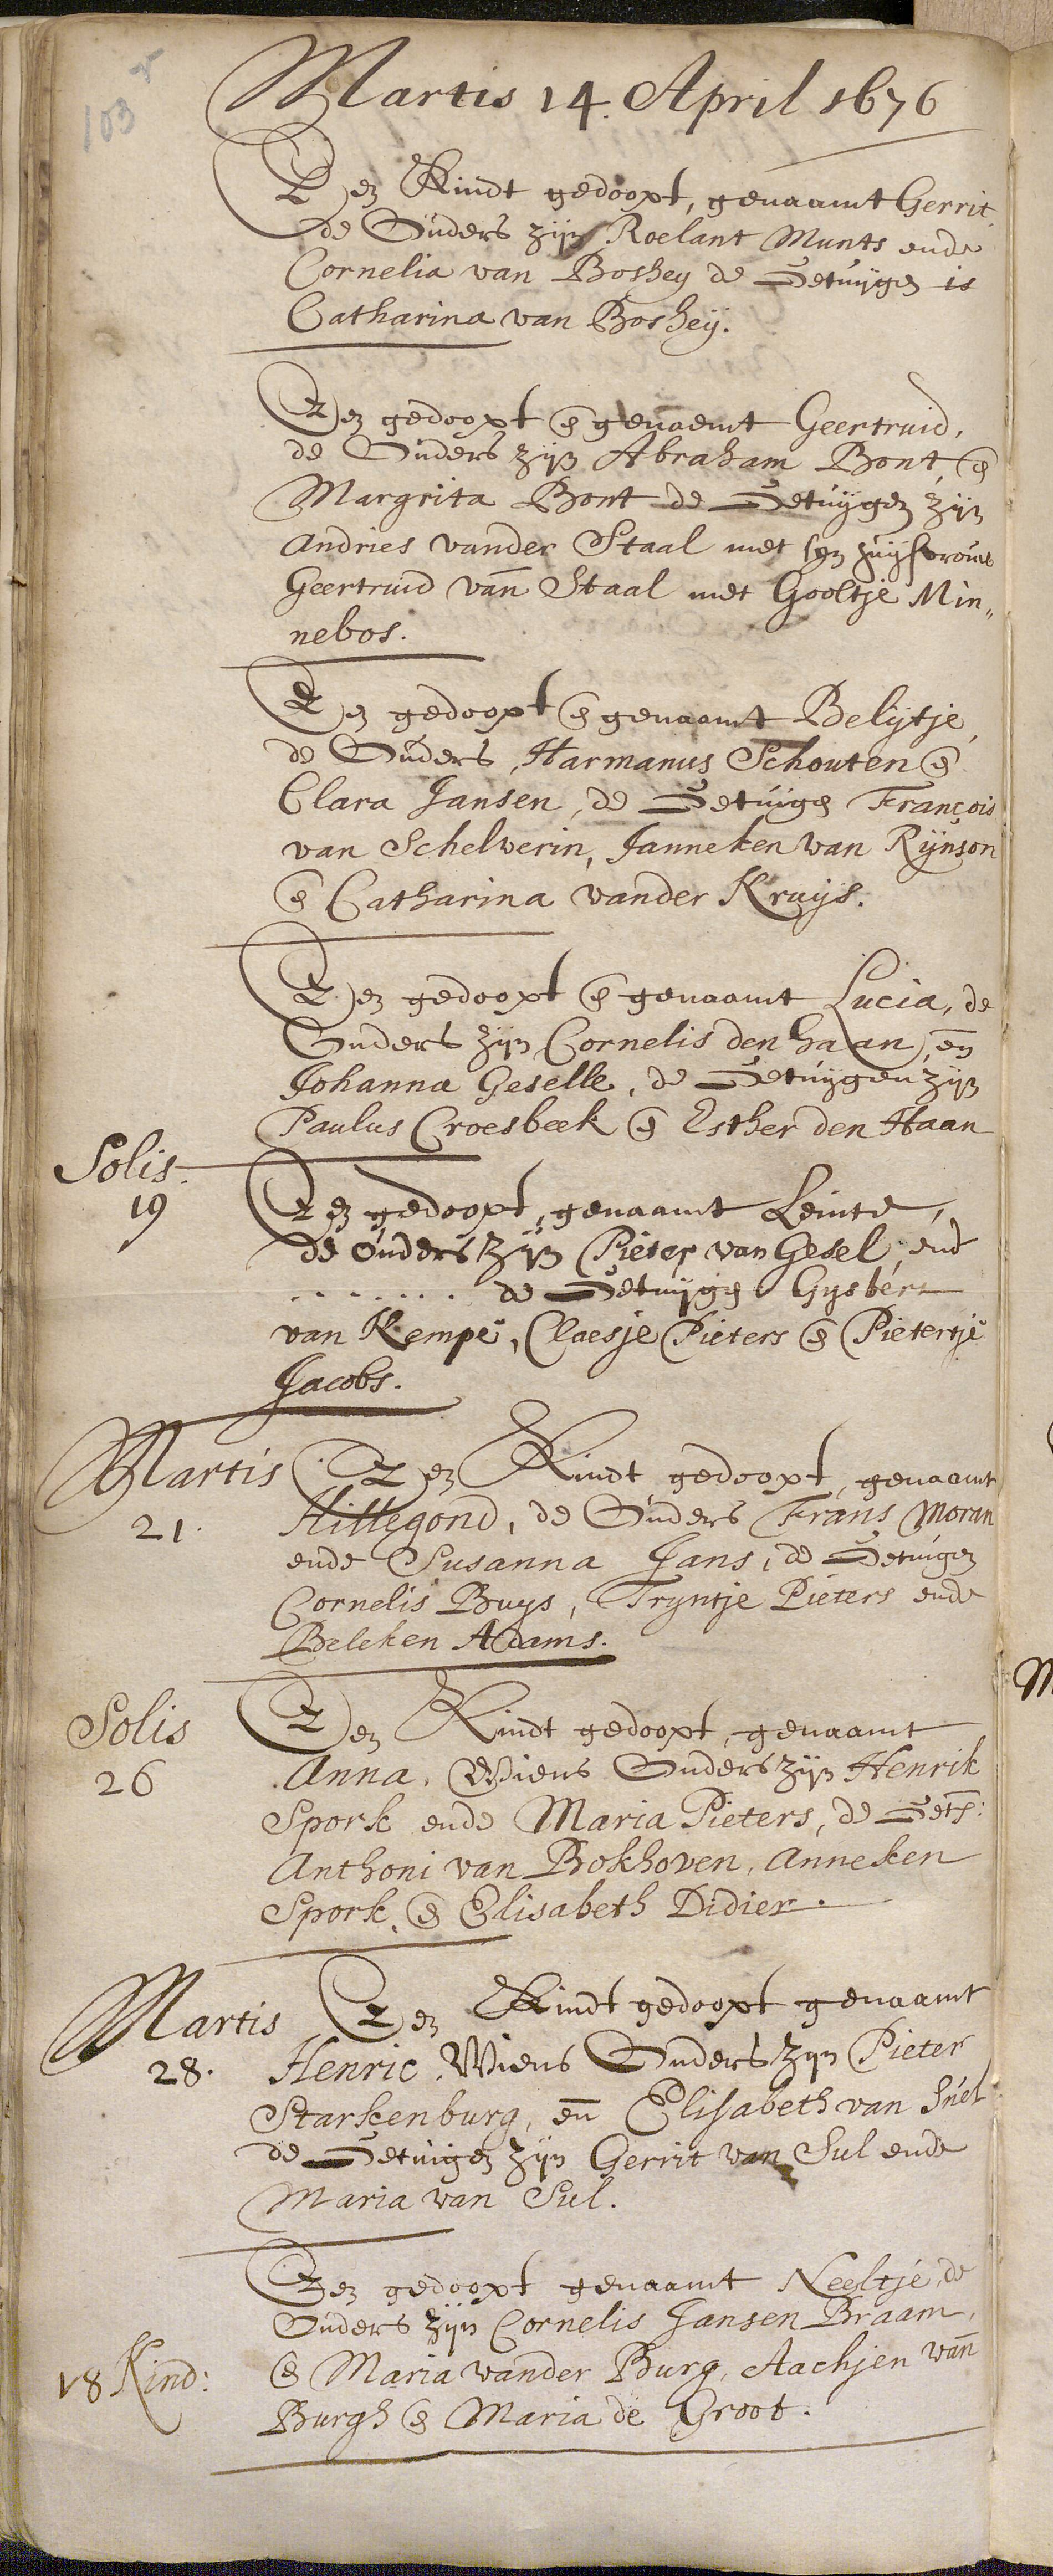 103 r
Martis 14. April 1676
Een Kindt gedoopt, genaamt Gerrit
de Ouders zijn Roelant Munts ende
Cornelia van Boshey de Getuijgen is
Catharina van Bosheij.
Een gedoopt en genaemt Geertruid,
de Ouders zijn Abraham Bont, en
Margrita Bont de Getuijgen zijn
Andries vander Staal met sijn huijsvrouw
Geertruid van Staal met Gooltje Min„
nebos.
Een gedoopt en genaamt Belijtje,
de Ouders, Harmanus Schouten en
Clara Jansen, de Getuigen François
van Schelverin, Janneken van Rijnson
en Catharina vander Kruijs.
Een gedoopt en genaamt Lucia, de
Ouders zijn Cornelis den Haan, en
Johanna Geselle, de Getuijgen zijn
Paulus Croesbeek en Esther den Haan
Solis.
19
Een gedoopt, genaamt Leinte,
de Ouders zijn Pieter van Gesel, ende
........ de Getuijgen Gysbert
van Kempe, Claesje Pieters en Pietertje
Jacobs.
Martis
21.
Een Kindt gedoopt, genaamt
Hillegond, de Ouders Frans Moran
ende Susanna Jans, de Getuigen
Cornelis Buys, Tryntje Pieters ende
Beleken Adams.
Solis
26
Een Kindt gedoopt, genaamt
Anna, Wiens Ouders zijn Henrik
Spork ende Maria Pieters, de Get:
Anthoni van Bokhoven, Anneken
Spork, en Elisabeth Didier.
Martis
28.
Een Kindt gedoopt genaamt
Henric, Wiens Ouders zijn Pieter
Starkenburg, en Elisabeth van Sul
de Getuigen zijn Gerrit van Sul ende
Maria van Sul.
Een gedoopt genaamt Neeltje, de
Ouders zijn Cornelis Jansen Braam,
18 Kind:
en Maria vander Burg, Aachjen van
Burgh en Maria de Groot.